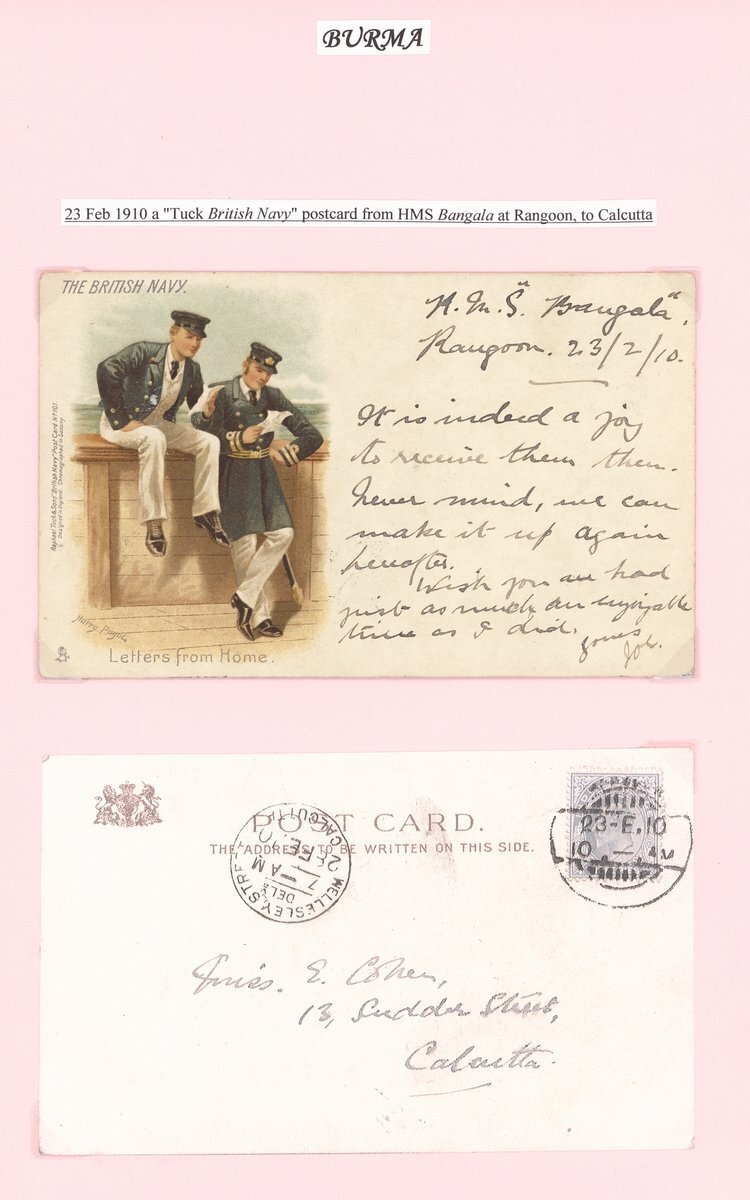 BURMA
23 Feb 1910 a "Tuck British Navy" postcard from HMS Bangala at Rangoon, to Calcutta
THE BRITISH NAVY.
Raphael Tuck & Sons' "British Navy" Post Card No 9101.
Designed in England. Chromographed in Saxony.
Harry Payne
Letters from Home.
"Bangala",
Rangoon. 23/2/10.
It is indeed a joy
to receive them then.
Never mind, we can
make it up again
hereafter.
Wish you had
just as much an enjoyable
time as I did.
yours
POST CARD.
THE ADDRESS TO BE WRITTEN ON THIS SIDE.
WELLESLEY STRE
CALCUTTA
DELY
7 - AM
28 FE
23-E.10
10
Miss. E. Cohen,
13, Sudder Street,
Calcutta.